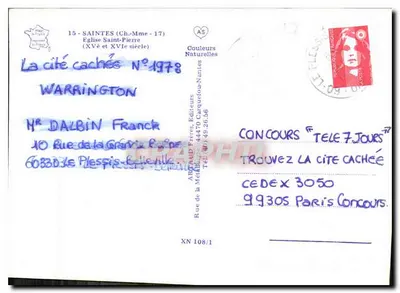 15 - SAINTES (Ch.-Mme - 17)
Eglise Saint-Pierre
(XVe et XVIe siècle)
Couleurs
Naturelles
La cité cachée N° 1978
WARRINGTON
Mr DALBIN Franck
10 Rue de la
60330 Le Plessis Belleville
CONCOURS "TELE 7 JOURS"
TROUVEZ LA CITE CACHÉE
CEDEX 3050
99305 PARIS CONCOURS
Editeurs
44470 Carquefou-Nantes
XN 108/1